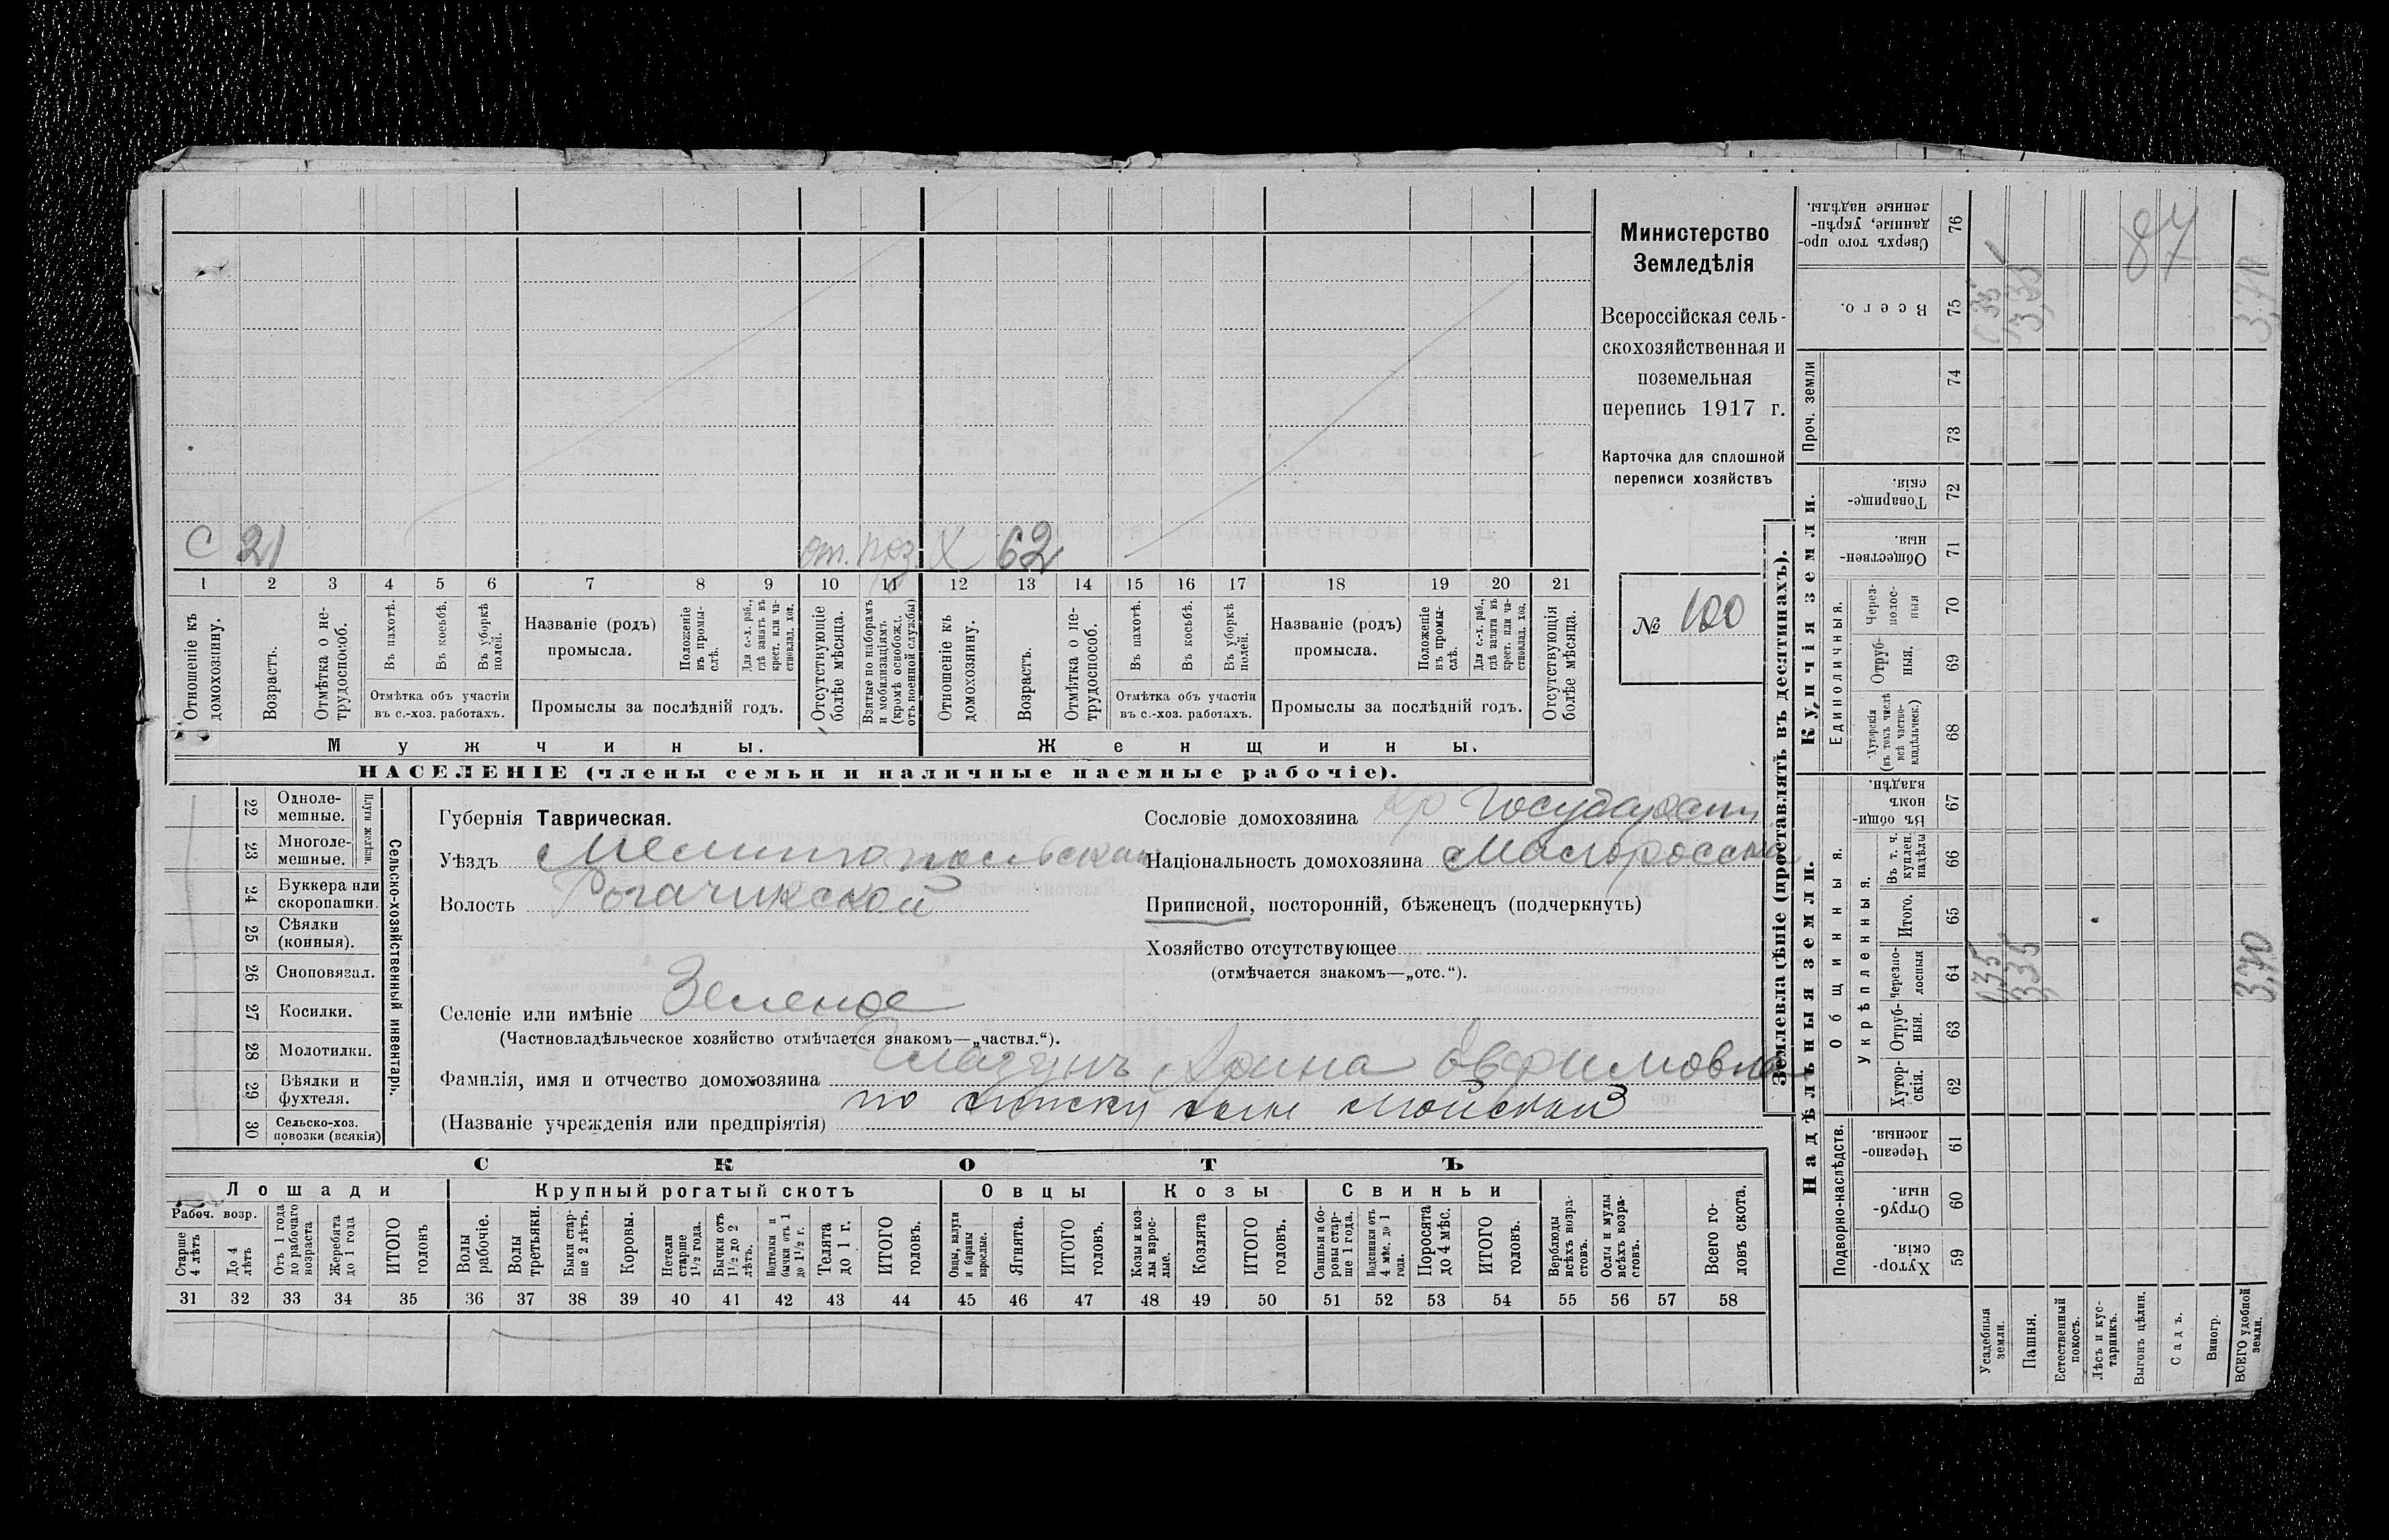 С 21 от. Х 62
1 2 3 4 5 6 7 8 9 10 11 12 13 14 15 16 17 18 19 20 21
Отношеніе къ домохозяину.
Возрастъ.
Отмѣтка о не-
трудоспособ.
Въ пахотѣ.
Въ косьбѣ.
Въ уборкѣ
полей.
Отмѣтка объ участіи
въ с.-хоз. работахъ.
Названіе (родъ)
промысла.
Положеніе
въ промы-
слѣ.
Для с.-х. раб.,
гдѣ занятъ въ
крест. или ча-
стновлад. хоз.
Промыслы за послѣдній годъ.
Отсутствующіе
болѣе мѣсяца.
Взятые по наборамъ
и мобилизаціямъ
(кромѣ освобожд.
отъ военной службы)
Отношеніе къ
домохозяину.
Возрастъ.
Отмѣтка о не-
трудоспособ.
Въ пахотѣ.
Въ косьбѣ.
Въ уборкѣ
полей.
Отмѣтка объ участіи
въ с.-хоз. работахъ.
Названіе (родъ)
промысла.
Положеніе
въ промы-
слѣ.
Для с.-х. раб.,
гдѣ занята въ
крест. или ча-
стновлад. хоз.
Промыслы за послѣдній годъ.
Отсутствующія
болѣе мѣсяца.
Мужчины.
Женщины.
НАСЕЛЕНІЕ (члены семьи и наличные наемные рабочіе).
Министерство
Земледѣлія
Всероссійская сель-
скохозяйственная и
поземельная
перепись 1917 г.
Карточка для сплошной
переписи хозяйствъ
№ 100
Сельско-хозяйственный инвентарь.
Плуги желѣзн.
22 Одноле-
мешные.
23 Многоле-
мешные.
24 Буккера или
скоропашки.
25 Сѣялки
(конныя).
26 Сноповязал.
27 Косилки.
28 Молотилки.
29 Вѣялки и
фухтеля.
30 Сельско-хоз.
повозки (всякія)
Губернія Таврическая.
Уѣздъ Мелитопольскаго
Волость Рогачикской
Селеніе или имѣніе Зеленое
(Частновладѣльческое хозяйство отмѣчается знакомъ—„частвл.“).
Фамилія, имя и отчество домохозяина Глазунъ Арина Евфимовна
(Названіе учрежденія или предпріятія) по списку сынъ Мойсей
Сословіе домохозяина кр Государст
Національность домохозяина Малороссы
Приписной, посторонній, бѣженецъ (подчеркнуть)
Хозяйство отсутствующее
(отмѣчается знакомъ—„отс.“).
СКОТЪ
Лошади
Рабоч. возр.
Старше
4 лѣтъ
До 4
лѣтъ
Отъ 1 года
до рабочаго
возраста
Жеребята
до 1 года
ИТОГО
головъ
Крупный рогатый скотъ
Волы
рабочіе.
Волы
третьяки.
Быки стар-
ше 2 лѣтъ.
Коровы.
Нетели
старше
1½ года.
Бычки отъ
1½ до 2
лѣтъ.
Подтелки и
бычки отъ 1
до 1½ г.
Телята
до 1 г.
ИТОГО
головъ.
Овцы
Овцы, валухи
и бараны
взрослые.
Ягнята.
ИТОГО
головъ.
Козы
Козы и коз-
лы взрос-
лые.
Козлята
ИТОГО
головъ.
Свиньи
Свиньи и бо-
ровы стар-
ше 1 года.
Подсвинки отъ
4 мѣс. до 1
года.
Поросята
до 4 мѣс.
ИТОГО
головъ.
Верблюды
всѣхъ возра-
стовъ.
Ослы и мулы
всѣхъ возра-
стовъ.
Всего го-
ловъ скота.
31 32 33 34 35 36 37 38 39 40 41 42 43 44 45 46 47 48 49 50 51 52 53 54 55 56 57 58
Землевладѣніе (проставлять въ десятинахъ).
Надѣльныя земли.
Купчія земли.
Подворно-наслѣдств.
Хутор-
скія. 59
Отруб-
ныя. 60
Черезпо-
лосныя. 61
Общинныя.
Укрѣпленныя.
Хутор-
скія. 62
Отруб-
ныя. 63
Черезпо-
лосныя 64
Итого. 65
Въ т. ч.
куплен.
надѣлы 66
Въ общи-
номъ
владѣн. 67
Единоличныя.
Хуторскія
(въ томъ числѣ
всѣ частно-
владѣльческ.) 68
Отруб-
ныя. 69
Через-
полос-
ныя 70
Обществен-
ныя. 71
Товарище-
скія. 72
Проч. земли
73 74
Всего. 75
Сверхъ того про-
данные, укрѣп-
ленные надѣлы. 76
Усадебныя
земли.
Пашня.
Естественный
покосъ.
Лѣсъ и кус-
тарникъ.
Выгонъ цѣлин.
Садъ.
Виногр.
ВСЕГО удобной
земли.
0,35
3,35
3,70
0,35
3,35
3,70
87